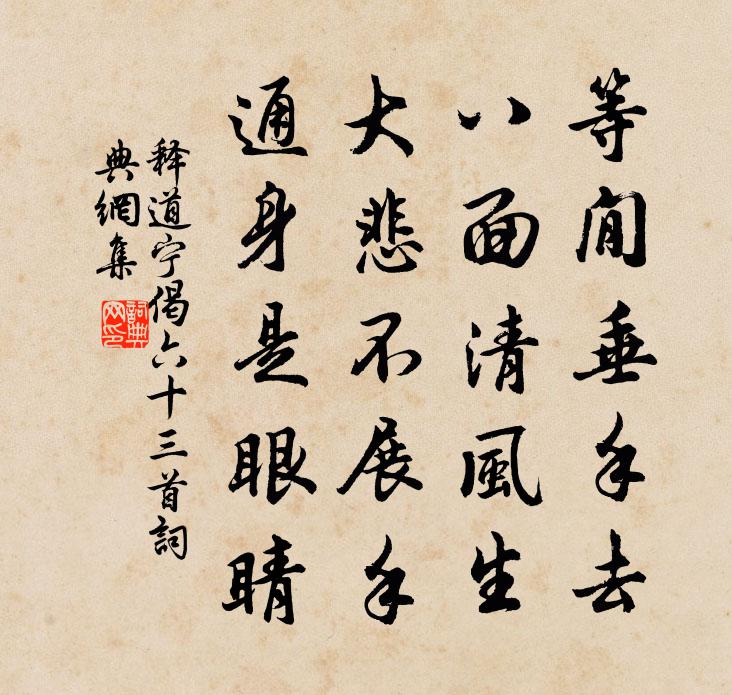 等閒垂手去
八面清風生
大悲不展手
通身是眼睛
释道宁偈六十三首詞
典網集
詞典網印